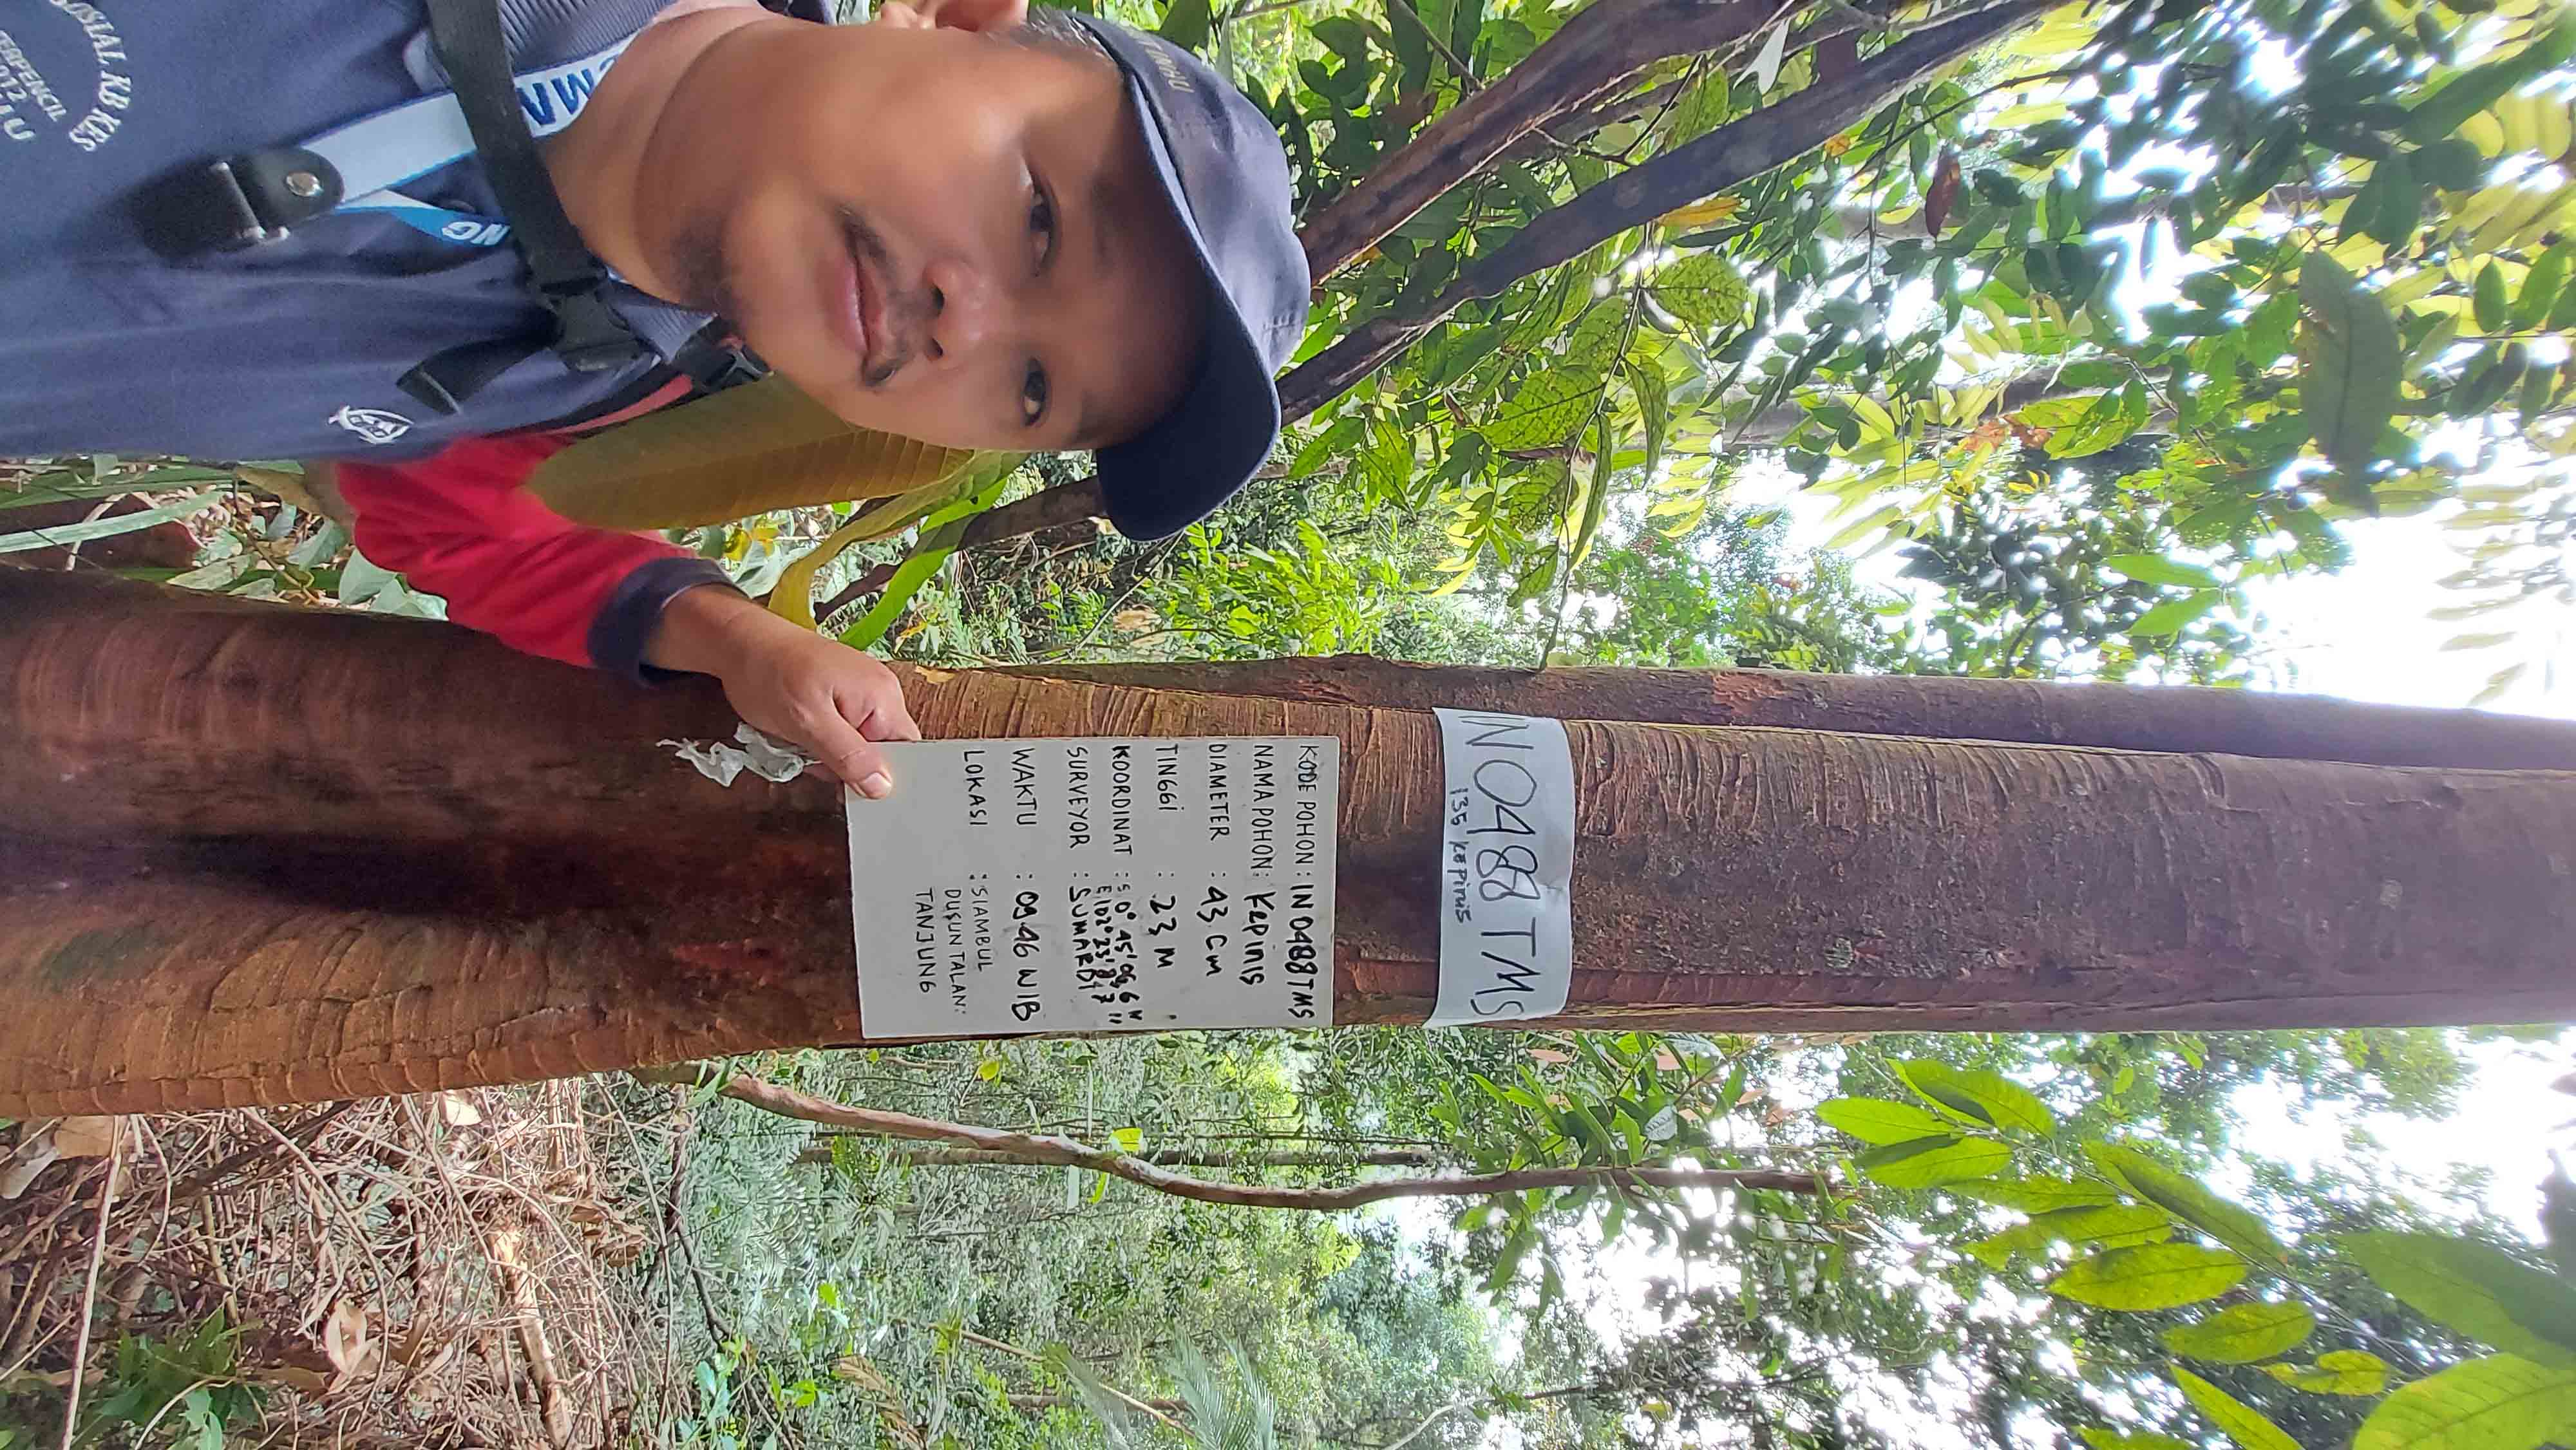 IN 0488 TMS
135 Kepinis
KODE POHON : IN 0488 TMS
NAMA POHON : Kepinis
DIAMETER : 43 cm
TINGGI : 23 M
KOORDINAT : S 0° 45' 06,6"
E 102° 23' 8,7"
SURVEYOR : SUMARDI
WAKTU : 09.46 WIB
LOKASI : SIAMBUL
DUSUN TALAN:
TANJUNG
SOSIAL KB KES
2012